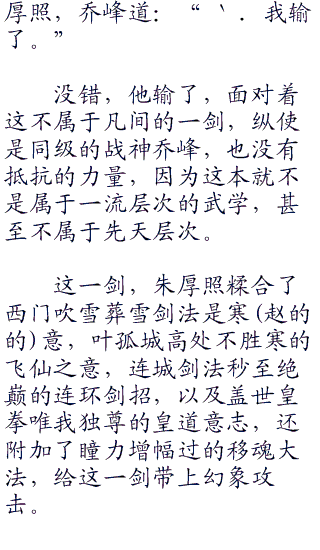 厚照，乔峰道：“ ‵ ．我输
了。”
没错，他输了，面对着
这不属于凡间的一剑，纵使
是同级的战神乔峰，也没有
抵抗的力量，因为这本就不
是属于一流层次的武学，甚
至不属于先天层次。
这一剑，朱厚照糅合了
西门吹雪葬雪剑法是寒(赵的
的)意，叶孤城高处不胜寒的
飞仙之意，连城剑法秒至绝
巅的连环剑招，以及盖世皇
拳唯我独尊的皇道意志，还
附加了瞳力增幅过的移魂大
法，给这一剑带上幻象攻
击。